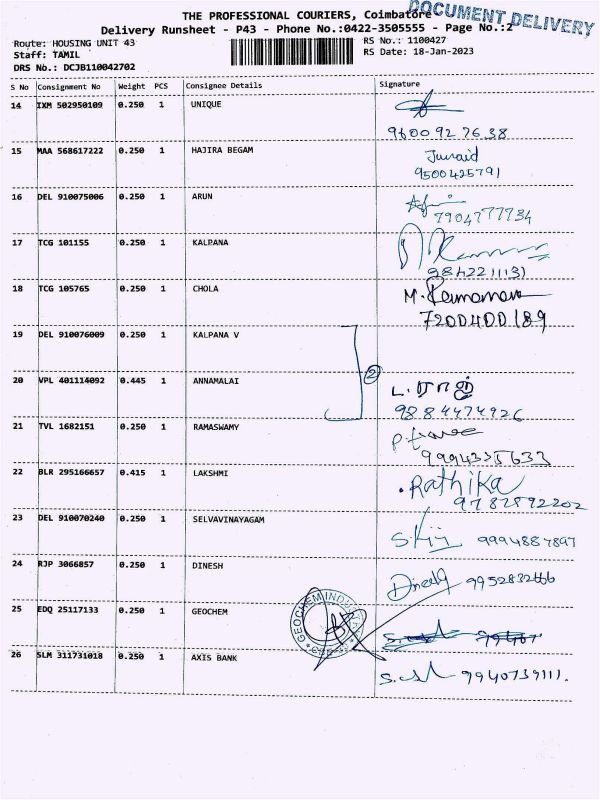 THE PROFESSIONAL COURIERS, Coimbatore
DOCUMENT DELIVERY
Delivery Runsheet - P43 - Phone No.:0422-3505555 - Page No.:2
Route: HOUSING UNIT 43 RS No.: 1100427
Staff: TAMIL RS Date: 18-Jan-2023
DRS No.: DCJB110042702
S No Consignment No Weight PCS Consignee Details Signature
14 IXM 502950109 0.250 1 UNIQUE
9600927638
15 MAA 568617222 0.250 1 HAJIRA BEGAM Junaid
9500425791
16 DEL 910075006 0.250 1 ARUN
7904777734
17 TCG 101155 0.250 1 KALPANA
9842211131
18 TCG 105765 0.250 1 CHOLA M. Ramanan
7200400189
19 DEL 910076009 0.250 1 KALPANA V
2
20 VPL 401114092 0.445 1 ANNAMALAI ட. ராஜ்
9884474926
21 TVL 1682151 0.250 1 RAMASWAMY
9994335633
22 BLR 295166657 0.415 1 LAKSHMI Rathika
9782892202
23 DEL 910070240 0.250 1 SELVAVINAYAGAM
9994887897
24 RJP 3066857 0.250 1 DINESH Dinesh
25 EDQ 25117133 0.250 1 GEOCHEM
GEOCHEM INDUSTR
26 SLM 311731018 0.250 1 AXIS BANK 9940739111.